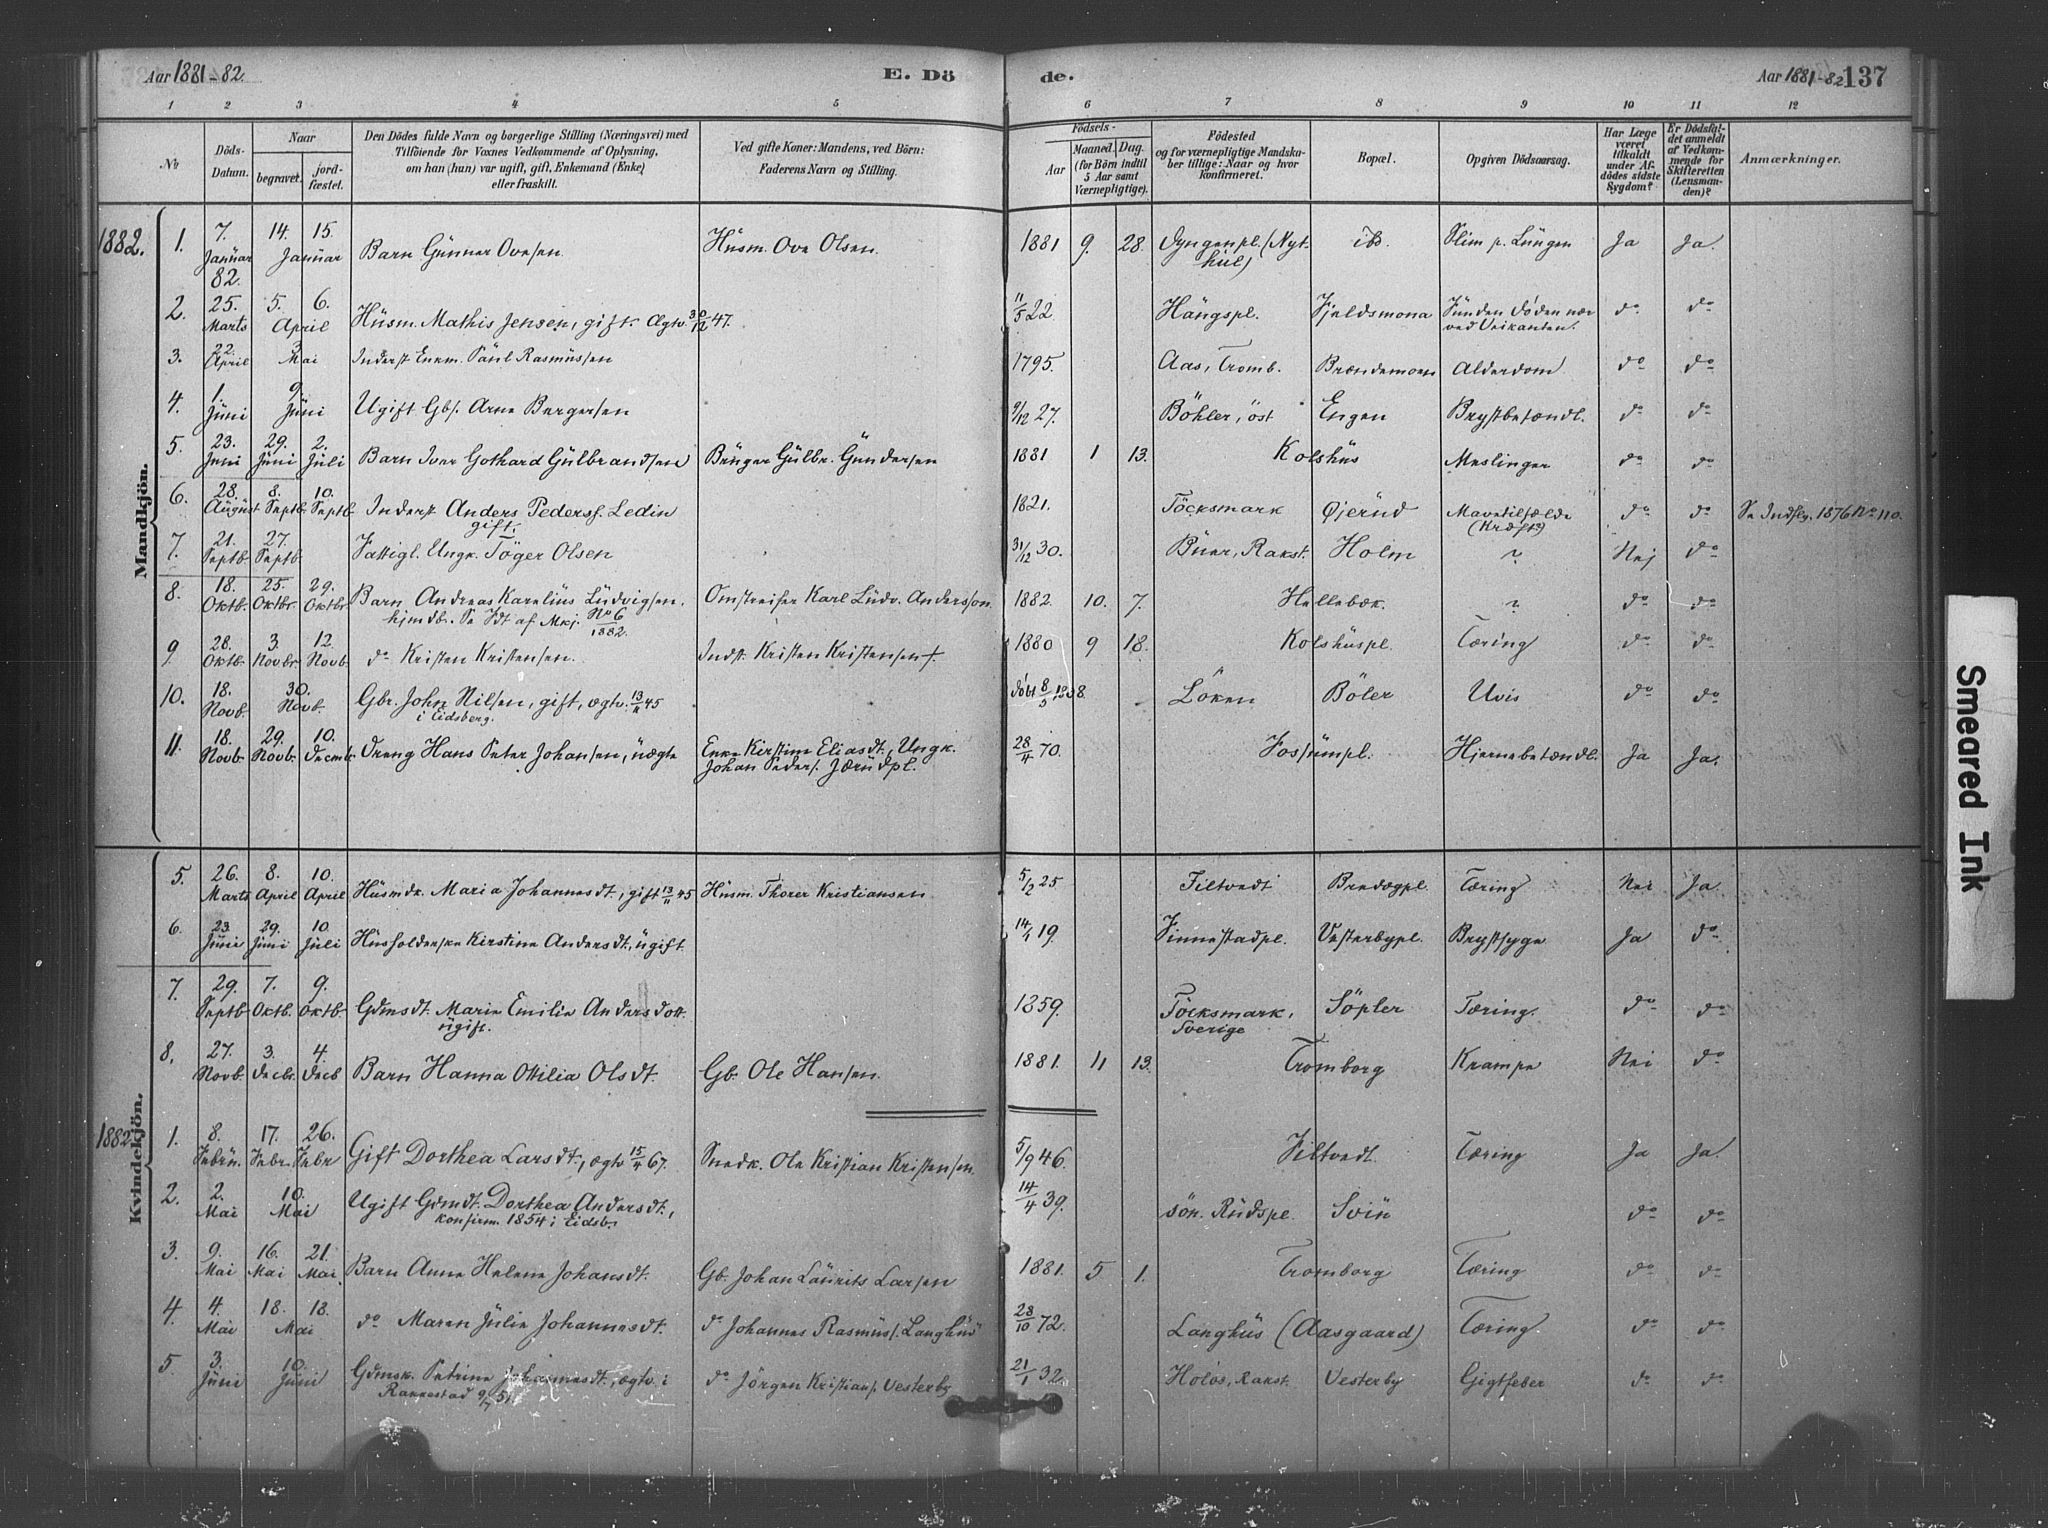 Aar 1881-82. E. Dö de. Aar 1881-82 137
1 2 3 4 5 6 7 8 9 10 11 12
No
Döds-Datum.
Naar
begravet.
jord-fæstet.
Den Dödes fulde Navn og borgerlige Stilling (Næringsvei) med
Tilföiende for Voxnes Vedkommende af Oplysning,
om han (hun) var ugift, gift, Enkemand (Enke)
eller fraskilt.
Ved gifte Koner: Mandens, ved Börn:
Faderens Navn og Stilling.
Födsels-
Aar
Maaned. Dag.
(for Börn indtil
5 Aar samt
Værnepligtige).
Födested
og for værnepligtige Mandska-
ber tillige: Naar og hvor
konfirmeret.
Bopæl.
Opgiven Dödsaarsag.
Har Læge
været
tilkaldt
under Af-
dödes sidste
Sygdom?
Er Dödsfal-
det anmeldt
af Vedkom-
mende for
Skifteretten
(Lensman-
den)?
Anmærkninger.
Mandkjön.
1882. 1. 7. Januar 82. 14. 15. Januar Barn Gunnar Ovesen Husm. Ove Olsen. 1881 9. 28. Dyngenpl. (Nyt-
hul) ibd. Slim p. Lungen Ja Ja.
2. 25. Marts 5. 6. April Husm. Mathis Jensen, gift. Ægtv. 30/12 47. 11/5 22. Hängspl. Fjeldsmona Funden døden nær
ved Veikanten. do do
3. 22. April 3 Mai Inderst Enkm. Paul Rasmussen 1795. Aas, Tromb. Brændemoen Alderdom do do
4. 1. Juni 9 Juni Ugift Gbs. Arne Bergersen 9/12 27. Böhler, öst Engen Brystbetændl. do do
5. 23. Juni 29. Juni 2. Juli Barn Iver Gothard Gulbrandsen Bruger Gulbr. Gundersen 1881 1 13. Kolshus Meslinger do do
6. 28. August 8. Septb. 10. Septb. Inderst Anders Peders. Ledin
gift. 1821. Töcksmark Øjerud Mavetilfælde
(Kræft?) do do Se Indfly. 1876 No 110.
7. 21. Septb. 27. Septb. Fattigl. Ungk. Töger Olsen 31/12 30. Buer, Rakst. Holm ? Nej do
8. 18. Oktb. 25. Oktbr. 29. Oktbr. Barn Andreas Karelius Ludvigsen.
hjmdb. Se Fdt af Mkj. No 6/1882. Omstreifer Karl Ludv. Andersson. 1882. 10. 7. Hellebæk. ? do do
9. 28. Oktb. 3. Novbr. 12. Novb. do Kristen Kristensen. Indst. Kristen Kristensen †. 1880 9 18. Kolshuspl. Tæring do do
10. 18. Novb. 30. Novb. Gbr. John Nilsen, gift, ægtv. 13/11 45
i Eidsberg. döbt 8/5 1808. Löken Böler Uvis do do
11. 18. Novb. 29. Novb. 10. Decmb. Dreng Hans Peter Johansen, uægte Enke Kirstine Eliasdt., Ungk.
Johan Peders. Jærudpl. 28/4 70. Fossumpl. Hjernebetændl. Ja Ja.
Kvindekjön.
5. 26. Marts 8. April 10. April Husmdk. Maria Johannesdt., gift 13/11 45 Husm. Thorer Kristiansen 5/2 25 Filtvedt Bredægpl. Tæring Nei Ja
6. 23. Juni 29. Juni 10. Juli Husholderske Kirstine Andersdt., ugift. 14/1 19. Finnestadpl. Vesterbypl. Brystsyge Ja do
7. 29. Septb. 7. Oktb. 9. Oktb. Gdmsdt. Marie Emilie Andersdott.
ugift. 1859. Töcksmark,
Sverige Söpler Tæring. do do
8. 27. Novb. 3. Decbr. 4. Decb Barn Hanna Otilia Olsdt. Gb. Ole Hansen. 1881. 11 13. Tromborg Krampe Nei do
1882 1. 8. Februn. 17. Febr. 26. Febr Gift Dorthea Larsdt., ægtv 15/4 67. Snedk. Ole Kristian Kristensen. 5/9 46. Filtvedt. Tæring Ja Ja.
2. 2. Mai 10. Mai Ugift Gdmdt. Dorthea Andersdt.,
konfirm. 1854 i Eidsb. 14/4 39. sön. Rudspl. Svin do do
3. 9. Mai 16. Mai 21. Mai. Barn Anne Helene Johansdt. Gb. Johan Laurits Larsen 1881. 5 1. Tromborg Tæring do do
4. 4. Mai 18. 18. Mai do Maren Julie Johannesdt. do Johannes Rasmus. Langhus 28/10 72. Langhus (Aasgaard) Tæring do do
5. 3. Juni 10. Juni Gdmsk. Petrine Johannesdt., ægtv. i
Rakkestad 9/7 51. do Jörgen Kristians. Vesterby 21/1 32. Holös, Rakst. Vesterby Gigtfeber do do
Smeared Ink